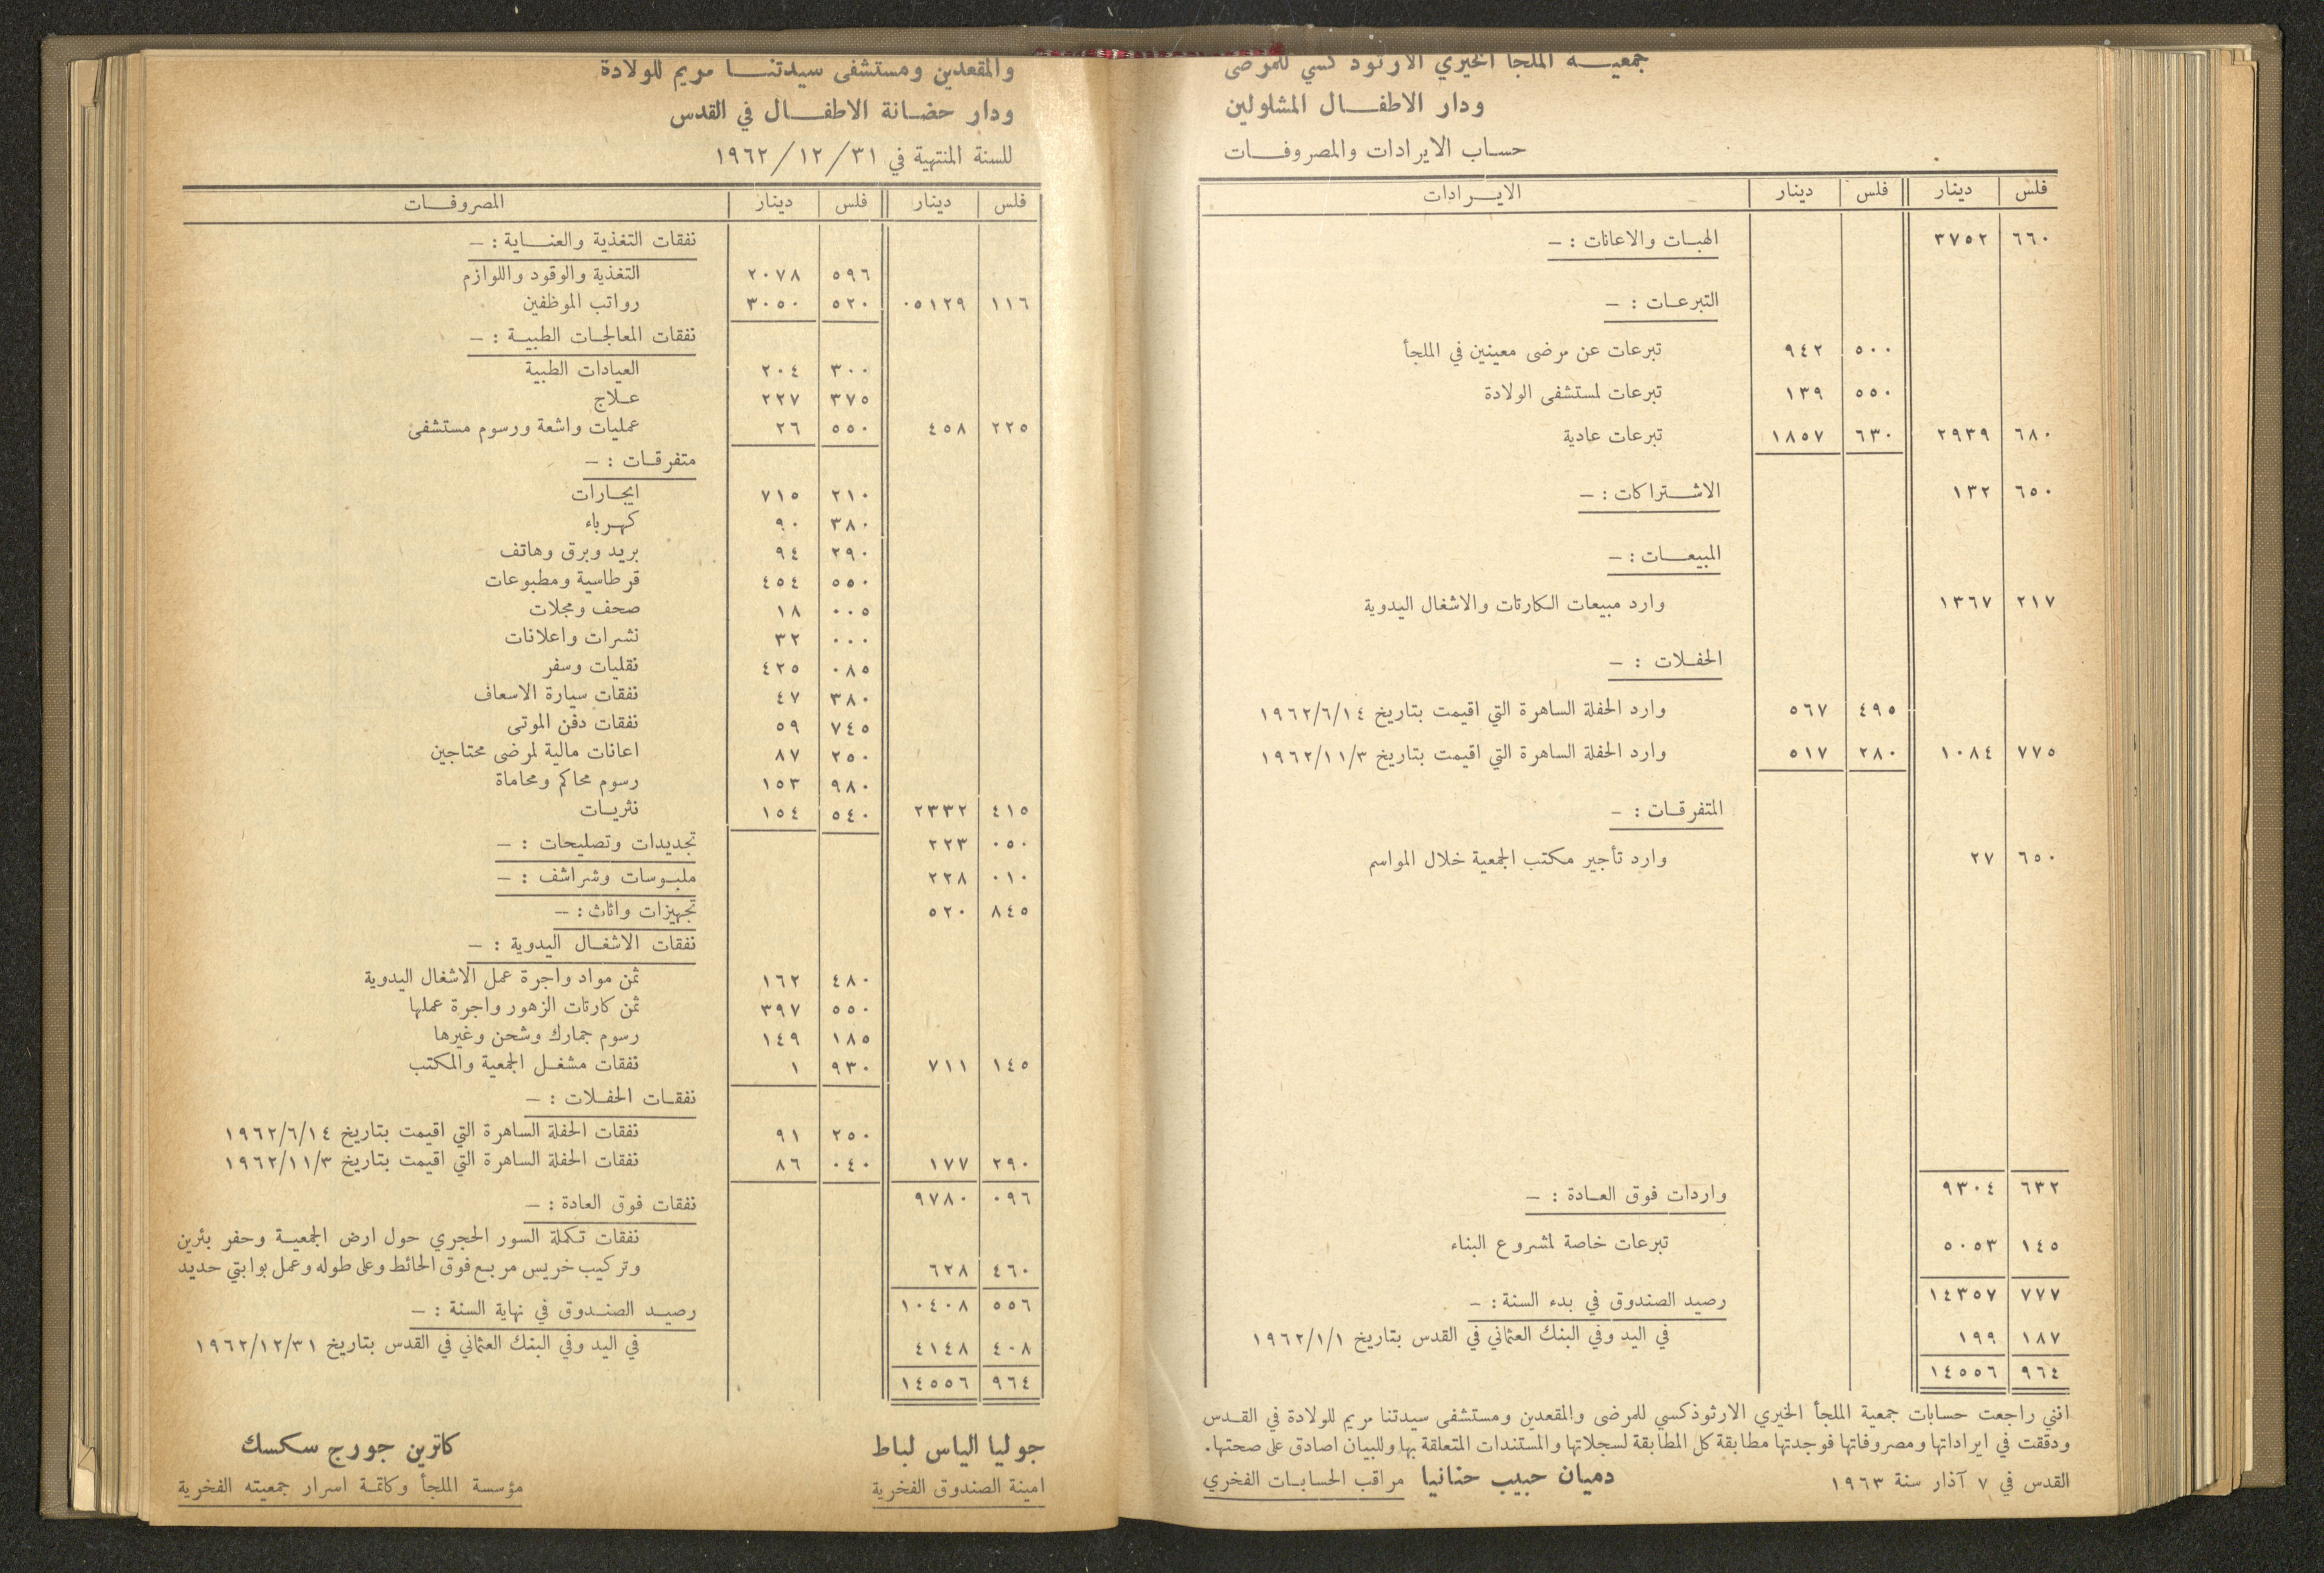 جمعيـــة الملجأ الخيري الارثوذكسي للمرضى
ودار الاطفـــال المشلولين
حساب الايرادات والمصروفـــات
فلس دينار فلس دينار الايـــرادات
٦٦٠ ٣٧٥٢ الهبـات والاعانات : –
التبرعـات : –
٥٠٠ ٩٤٢ تبرعات عن مرضى معينين في الملجأ
٥٥٠ ١٣٩ تبرعات لمستشفى الولادة
٦٨٠ ٢٩٣٩ ٦٣٠ ١٨٥٧ تبرعات عادية
٦٥٠ ١٣٢ الاشـتراكات : –
المبيعـــات : –
٢١٧ ١٣٦٧ وارد مبيعات الكارتات والاشغال اليدوية
الحفـلات : –
٤٩٥ ٥٦٧ وارد الحفلة الساهرة التي اقيمت بتاريخ ١٩٦٢/٦/١٤
٧٧٥ ١٠٨٤ ٢٨٠ ٥١٧ وارد الحفلة الساهرة التي اقيمت بتاريخ ١٩٦٢/١١/٣
المتفرقـات : –
٦٥٠ ٢٧ وارد تأجير مكتب الجمعية خلال المواسم
٦٣٢ ٩٣٠٤ واردات فوق العـادة : –
١٤٥ ٥٠٥٣ تبرعات خاصة لمشروع البناء
٧٧٧ ١٤٣٥٧ رصيد الصندوق في بدء السنة : –
١٨٧ ١٩٩ في اليد وفي البنك العثماني في القدس بتاريخ ١٩٦٢/١/١
٩٦٤ ١٤٥٥٦
انني راجعت حسابات جمعية الملجأ الخيري الارثوذكسي للمرضى والمقعدين ومستشفى سيدتنا مريم للولادة في القـدس
ودققت في ايراداتها ومصروفاتها فوجدتها مطابقة كل المطابقة لسجلاتها والمستندات المتعلقة بها وللبيان اصادق على صحتها.
القدس في ٧ آذار سنة ١٩٦٣ دميان حبيب حنانيا مراقب الحسابـات الفخري
والمقعدين ومستشفى سيدتنـــا مريم للولادة
ودار حضـانة الاطفـــال في القدس
للسنة المنتهية في ٣١ / ١٢ / ١٩٦٢
فلس دينار فلس دينار المصروفـــات
نفقات التغذية والعنـــاية : –
٥٩٦ ٢٠٧٨ التغذية والوقود واللوازم
١١٦ ٠٥١٢٩ ٥٢٠ ٣٠٥٠ رواتب الموظفين
نفقات المعالجـات الطبيـة : –
٣٠٠ ٢٠٤ العيادات الطبية
٣٧٥ ٢٢٧ عـلاج
٢٢٥ ٤٥٨ ٥٥٠ ٢٦ عمليات واشعة ورسوم مستشفى
متفرقـات : –
٢١٠ ٧١٥ ايجـارات
٣٨٠ ٩٠ كهـرباء
٢٩٠ ٩٤ بريد وبرق وهاتف
٥٥٠ ٤٥٤ قرطاسية ومطبوعات
٠٠٥ ١٨ صحف ومجلات
٠٠٠ ٣٢ نشرات واعلانات
٠٨٥ ٤٢٥ نقليات وسفر
٣٨٠ ٤٧ نفقات سيارة الاسعاف
٧٤٥ ٥٩ نفقات دفن الموتى
٢٥٠ ٨٧ اعانات مالية لمرضى محتاجين
٩٨٠ ١٥٣ رسوم محاكم ومحاماة
٤١٥ ٢٣٣٢ ٥٤٠ ١٥٤ نثريـات
٠٥٠ ٢٢٣ تجديدات وتصليحات : –
٠١٠ ٢٢٨ ملبـوسات وشراشف : –
٨٤٥ ٥٢٠ تجهيزات واثاث : –
نفقات الاشغـال اليدوية : –
٤٨٠ ١٦٢ ثمن مواد واجرة عمل الاشغال اليدوية
٥٥٠ ٣٩٧ ثمن كارتات الزهور واجرة عملها
١٨٥ ١٤٩ رسوم جمارك وشحن وغيرها
١٤٥ ٧١١ ٩٣٠ ١ نفقات مشغـل الجمعية والمكتب
نفقـات الحفـلات : –
٢٥٠ ٩١ نفقات الحفلة الساهرة التي اقيمت بتاريخ ١٩٦٢/٦/١٤
٢٩٠ ١٧٧ ٠٤٠ ٨٦ نفقات الحفلة الساهرة التي اقيمت بتاريخ ١٩٦٢/١١/٣
٠٩٦ ٩٧٨٠ نفقات فوق العادة : –
نفقات تكملة السور الحجري حول ارض الجمعيـة وحفر بئرين
٤٦٠ ٦٢٨ وتركيب خريس مربـع فوق الحائط وعلى طوله وعمل بوابتي حديد
٥٥٦ ١٠٤٠٨ رصيـد الصنـدوق في نهاية السنة : –
٤٠٨ ٤١٤٨ في اليد وفي البنك العثماني في القدس بتاريخ ١٩٦٢/١٢/٣١
٩٦٤ ١٤٥٥٦
جوليا الياس لباط كاترين جورج سكسك
امينة الصندوق الفخرية مؤسسة الملجأ وكاتمـة اسرار جمعيته الفخرية